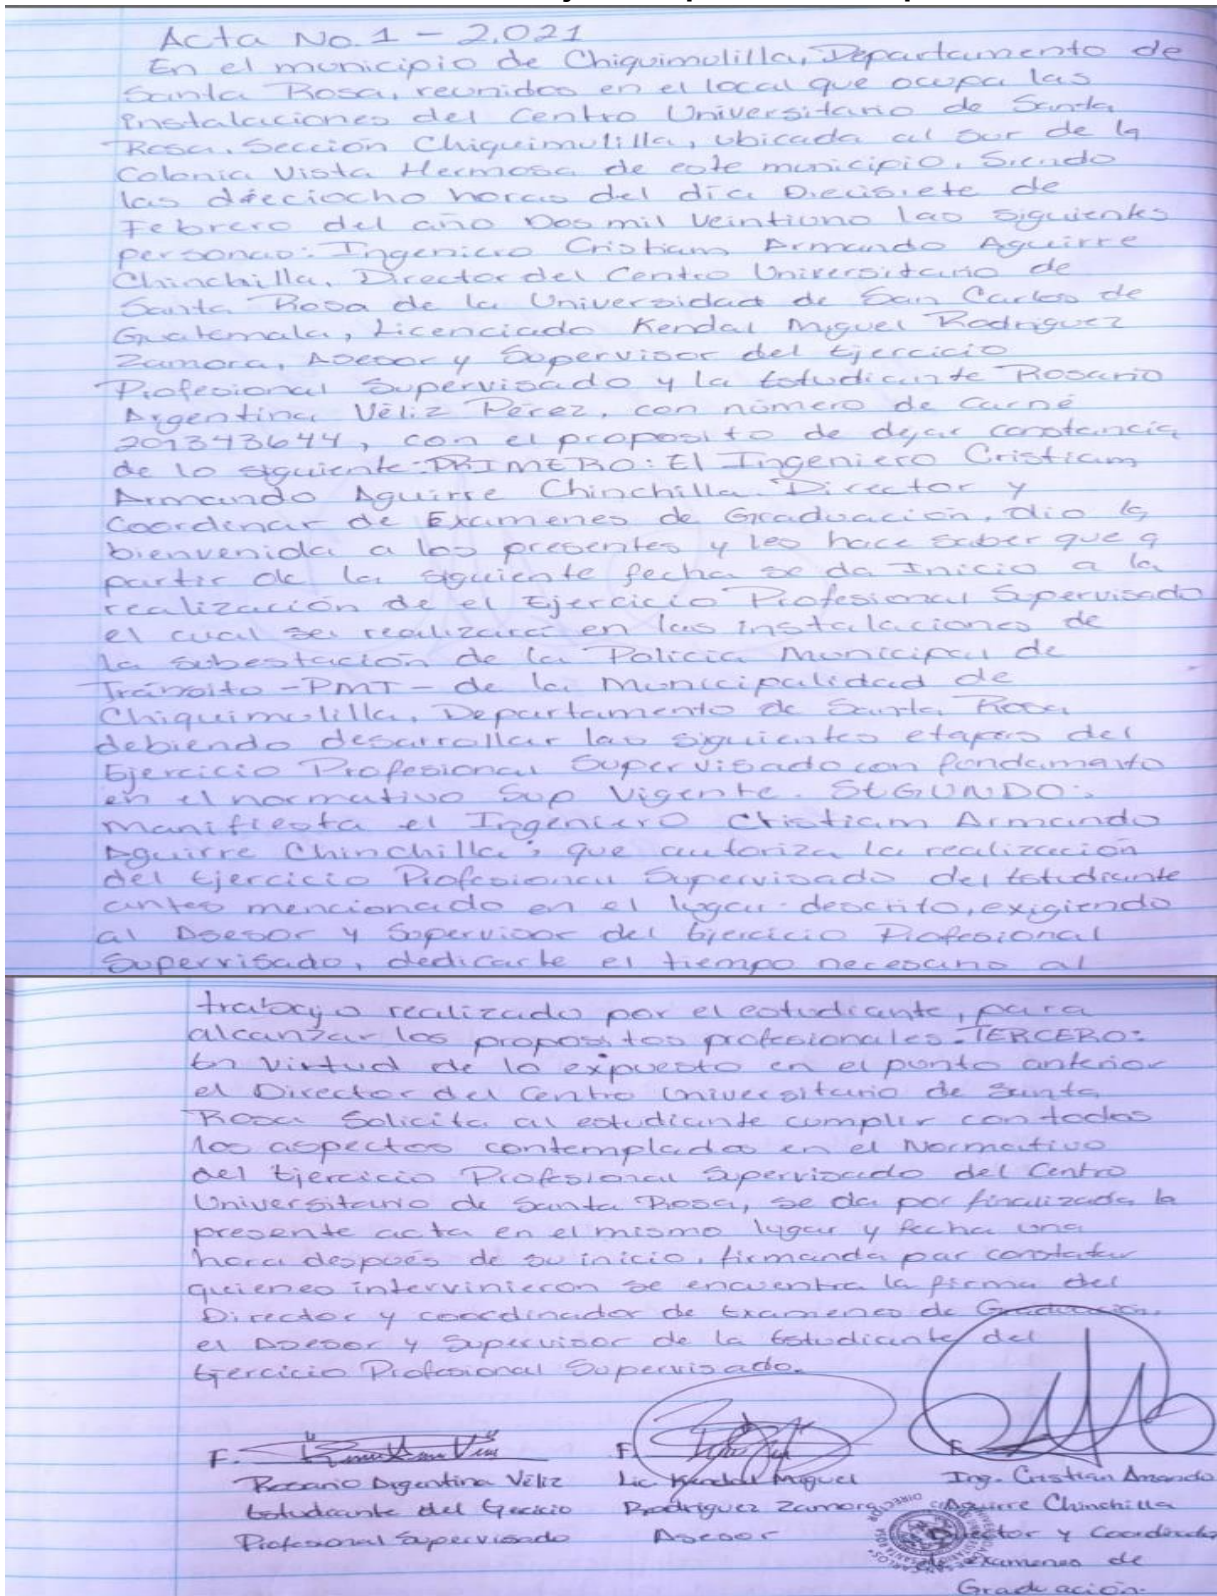 Acta No. 1 - 2,021
En el municipio de Chiquimulilla, Departamento de
Santa Rosa, reunidos en el local que ocupa las
instalaciones del Centro Universitario de Santa
Rosa. Sección Chiquimulilla, ubicada al sur de la
Colonia Vista Hermosa de este municipio. Siendo
las dieciocho horas del día Diecisiete de
Febrero del año Dos mil Veintiuno las siguientes
personas: Ingeniero Cristiam Armando Aguirre
Chinchilla. Director del Centro Universitario de
Santa Rosa de la Universidad de San Carlos de
Guatemala, Licenciado Kendal Miguel Rodriguez
Zamora, Asesor y Supervisor del Ejercicio
Profesional Supervisado y la Estudiante Rosario
Argentina Véliz Pérez, con número de carné
201343644, con el proposito de dejar constancia
de lo siguiente: PRIMERO: El Ingeniero Cristiam
Armando Aguirre Chinchilla. Director y
Coordinar de Examenes de Graduación, dio la
bienvenida a los presentes y les hace saber que a
partir de la siguiente fecha se da Inicio a la
realización de el Ejercicio Profesional Supervisado
el cual se realizará en las instalaciones de
la subestación de la Policia Municipal de
Tránsito -PMT- de la Municipalidad de
Chiquimulilla, Departamento de Santa Rosa
debiendo desarrollar las siguientes etapas del
Ejercicio Profesional Supervisado con fundamento
en el normativo Sup Vigente. SEGUNDO:
Manifiesta el Ingeniero Cristiam Armando
Aguirre Chinchilla; que autoriza la realización
del Ejercicio Profesional Supervisado del Estudiante
antes mencionado en el lugar descrito, exigiendo
al Asesor y Supervisor del Ejercicio Profesional
Supervisado, dedicarle el tiempo necesario al
trabajo realizado por el estudiante, para
alcanzar los propositos profesionales. TERCERO:
En virtud de lo expuesto en el punto anterior
el Director del Centro Universitario de Santa
Rosa Solicita al estudiante cumplir con todos
los aspectos contemplados en el Normativo
del Ejercicio Profesional Supervisado del Centro
Universitario de Santa Rosa, se da por finalizada la
presente acta en el mismo lugar y fecha una
hora después de su inicio, firmanda par constatar
quienes intervinieron se encuentra la firma del
Director y coordinador de Examenes de Graduación,
el Asesor y Supervisor de la Estudiante del
Ejercicio Profesional Supervisado.
F. F. F.
Rosario Argentina Véliz Lic. Kendal Miguel Ing. Cristian Amando
Estudiante del Ejecicio Rodriguez Zamora Aguirre Chinchilla
Profesional Supervisado Asesor Director y Coordinador
de Examenes de
Graduación.